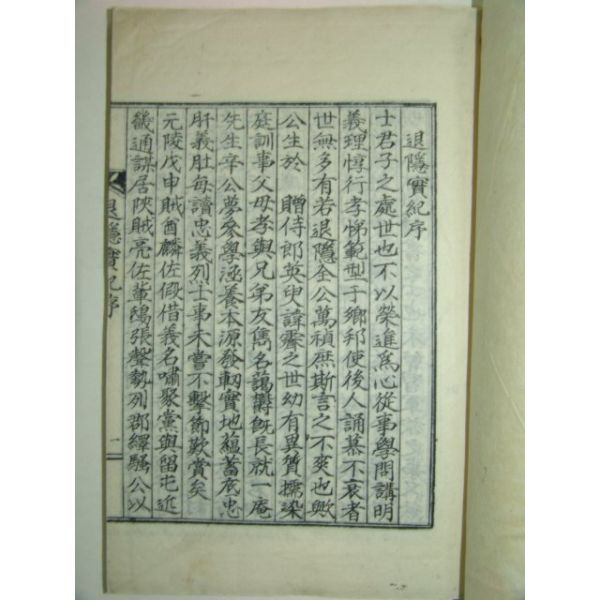 退隱實紀序
士君子之處世也不以榮進爲心從事學問講明
義理惇行孝悌範型于鄉邦使後人誦慕不衰者
世無多有若退隱全公萬禎庶斯言之不爽也歟
公生於 贈侍郎英叟諱霽之世幼有異質擩染
庭訓事父母孝與兄弟友雋名藹欝旣長就一庵
先生辛公夢參學涵養本源發軔實地蘊蓄底忠
肝義肚每讀忠義列士事未嘗不擊節歎賞矣
元陵戊申賊酋麟佐假借義名嘯聚黨與留屯近
畿通謀居陝賊亮佐輩鴟張聲勢列郡繹騷公以
退隱實紀序
一